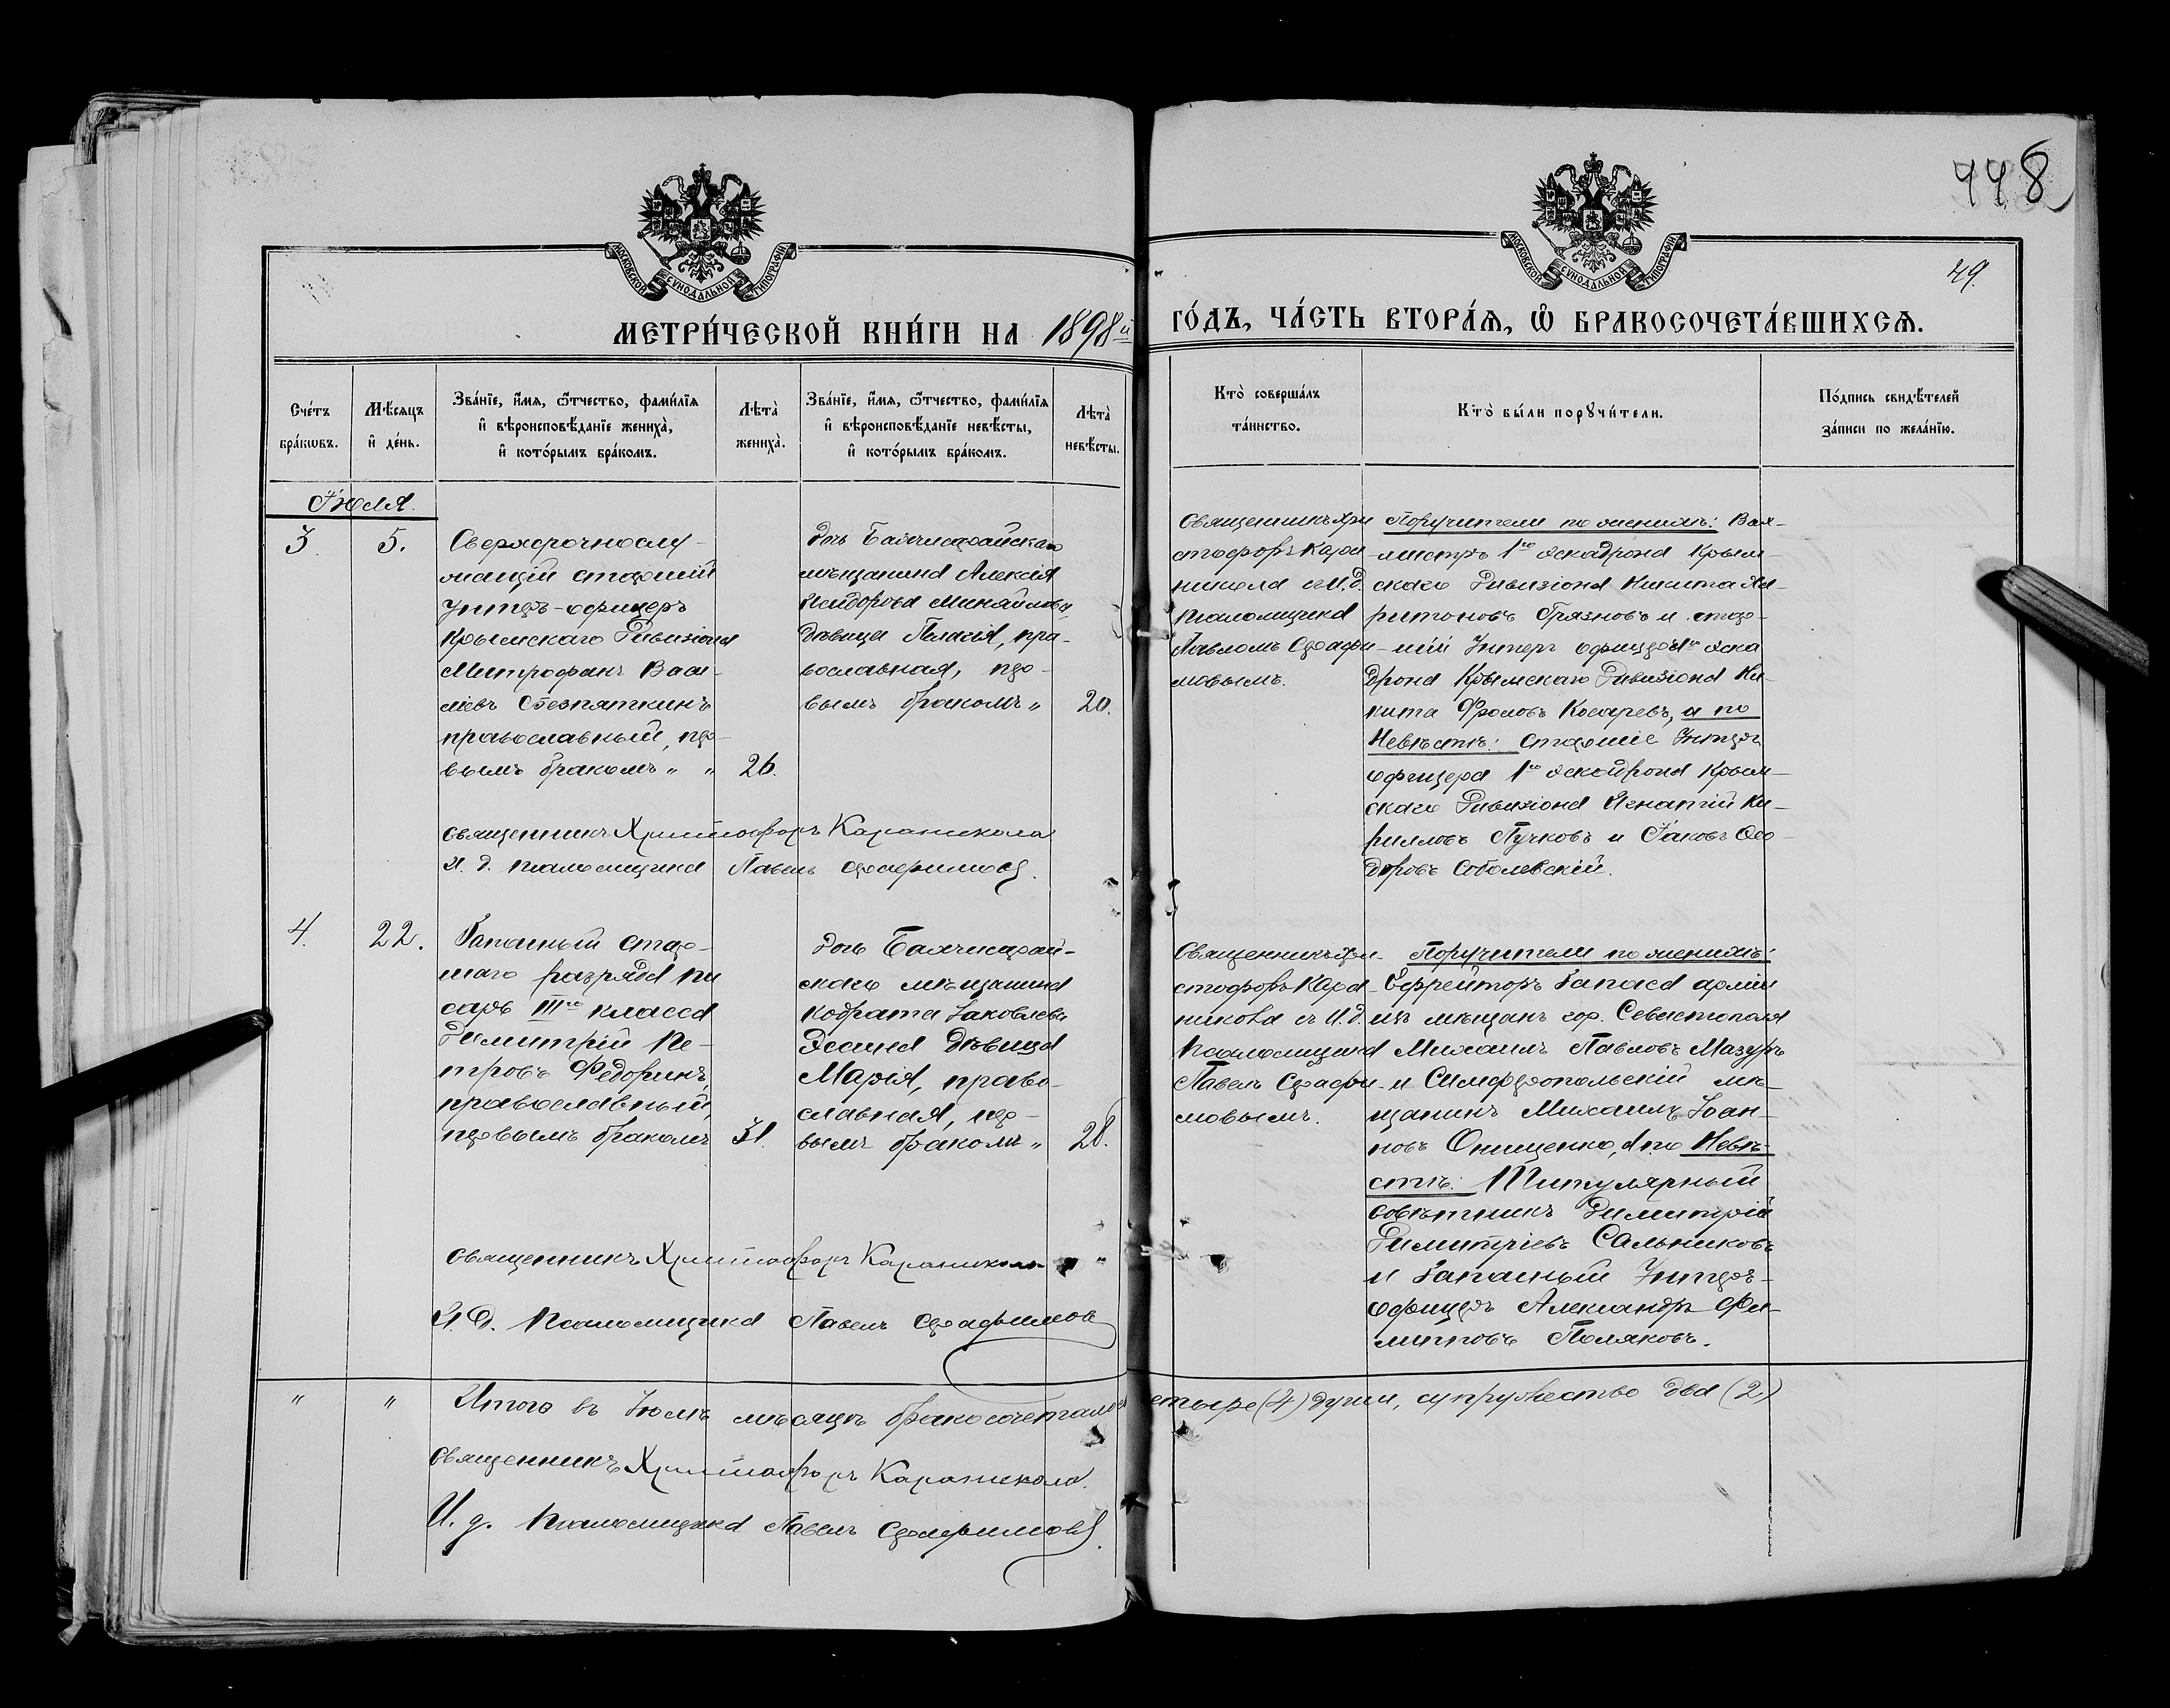 448
49.
МОСКОВСКОЙ СѴНОДАЛЬНОЙ ТИПОГРАФІИ
МОСКОВСКОЙ СѴНОДАЛЬНОЙ ТИПОГРАФІИ
МЕТРИ́ЧЕСКОЙ КНИ́ГИ НА 1898й ГО́ДЪ, ЧА́СТЬ ВТОРА́Ѧ, Ѡ҆ БРАКОСОЧЕТА́ВШИХСѦ.
Сче́тъ
бра́кѡвъ.
Мѣ́сѧцъ
и҆ де́нь.
Зва́нїе, и҆́мѧ, ѻ҆́тчество, фами́лїѧ
и҆ вѣроисповѣ́данїе жениха̀,
и҆ кото́рымъ бра́комъ.
Лѣ́та̀
жениха̀.
Зва́нїе, и҆́мѧ, ѻ҆́тчество, фами́лїѧ
и҆ вѣроисповѣ́данїе невѣ́сты,
и҆ кото́рымъ бра́комъ.
Лѣ́та̀
невѣ́сты.
Кто̀ соверша́лъ
та́инство.
Кто̀ бы́ли порꙋчи́тели.
По́дпись свидѣ́телей
за́писи по жела́нїю.
Іюля.
3. 5.
Сверхсрочнослу-
жащій старшій
Унтеръ-офицеръ
Крымскаго Дивизіона
Митрофанъ Васи-
ліевъ Безпяткинъ
православный, пер-
вымъ бракомъ " "
26.
Дочь Бахчисарайскаго
мѣщанина Алексія
Исидорова
дѣвица Пелагія, пра-
вославная, пер-
вымъ бракомъ "
20.
Священникъ Хри
стофоръ Кара
никола и И. д.
псаломщика
Павломъ Серафи-
мовымъ.
Поручители по женихѣ: Вах-
мистръ 1го эскадрона Крым-
скаго Дивизіона Никита Ха-
ритоновъ Грязновъ и стар-
шій Унтеръ офицеръ 1го эска
дрона Крымскаго Дивизіона Ни-
кита Фроловъ Косаревъ, а по
Невѣстѣ: старшіе Унтеръ
офицера 1го эскадрона Крым-
скаго Дивизіона Игнатій Ки-
рилловъ Пучковъ и Іаковъ Ѳео-
доровъ Соболевскій.
Священникъ Христофоръ Караникола
И. д. псаломщика Павелъ Серафимовъ.
4. 22.
Запасный стар-
шаго разряда пи
сарь IIIго класса
Димитрій Пе-
тровъ Федоринъ,
православный,
первымъ бракомъ
31.
Дочь Бахчисарай-
скаго мѣщанина
Кодрата Іаковлева
дѣвица
Марія, право-
славная, пер-
вымъ бракомъ "
28.
Священникъ Хри-
стофоръ Кара-
никола съ И. д.
псаломщика
Павелъ Серафи-
мовымъ.
Поручители по женихѣ:
Ефрейторъ Запаса арміи
изъ мѣщанъ гор. Севастополя
Михаилъ Павловъ Мазуръ
и Симферопольскій мѣ-
щанинъ Михаилъ Іоан-
новъ Онищенко, а по Невѣ-
стѣ: Титулярный
Совѣтникъ Димитрій
Димитріевъ Сальниковъ
и Запасный Унтеръ-
офицеръ Александръ Фи-
липповъ Поляковъ.
Священникъ Христофоръ Караникола "
И. д. псаломщика Павелъ Серафимовъ
" " Итого въ Іюлѣ мѣсяцѣ бракосочеталось четыре (4) души, супружество два (2)
Священникъ Христофоръ Караникола.
И. д. псаломщика Павелъ Серафимовъ.